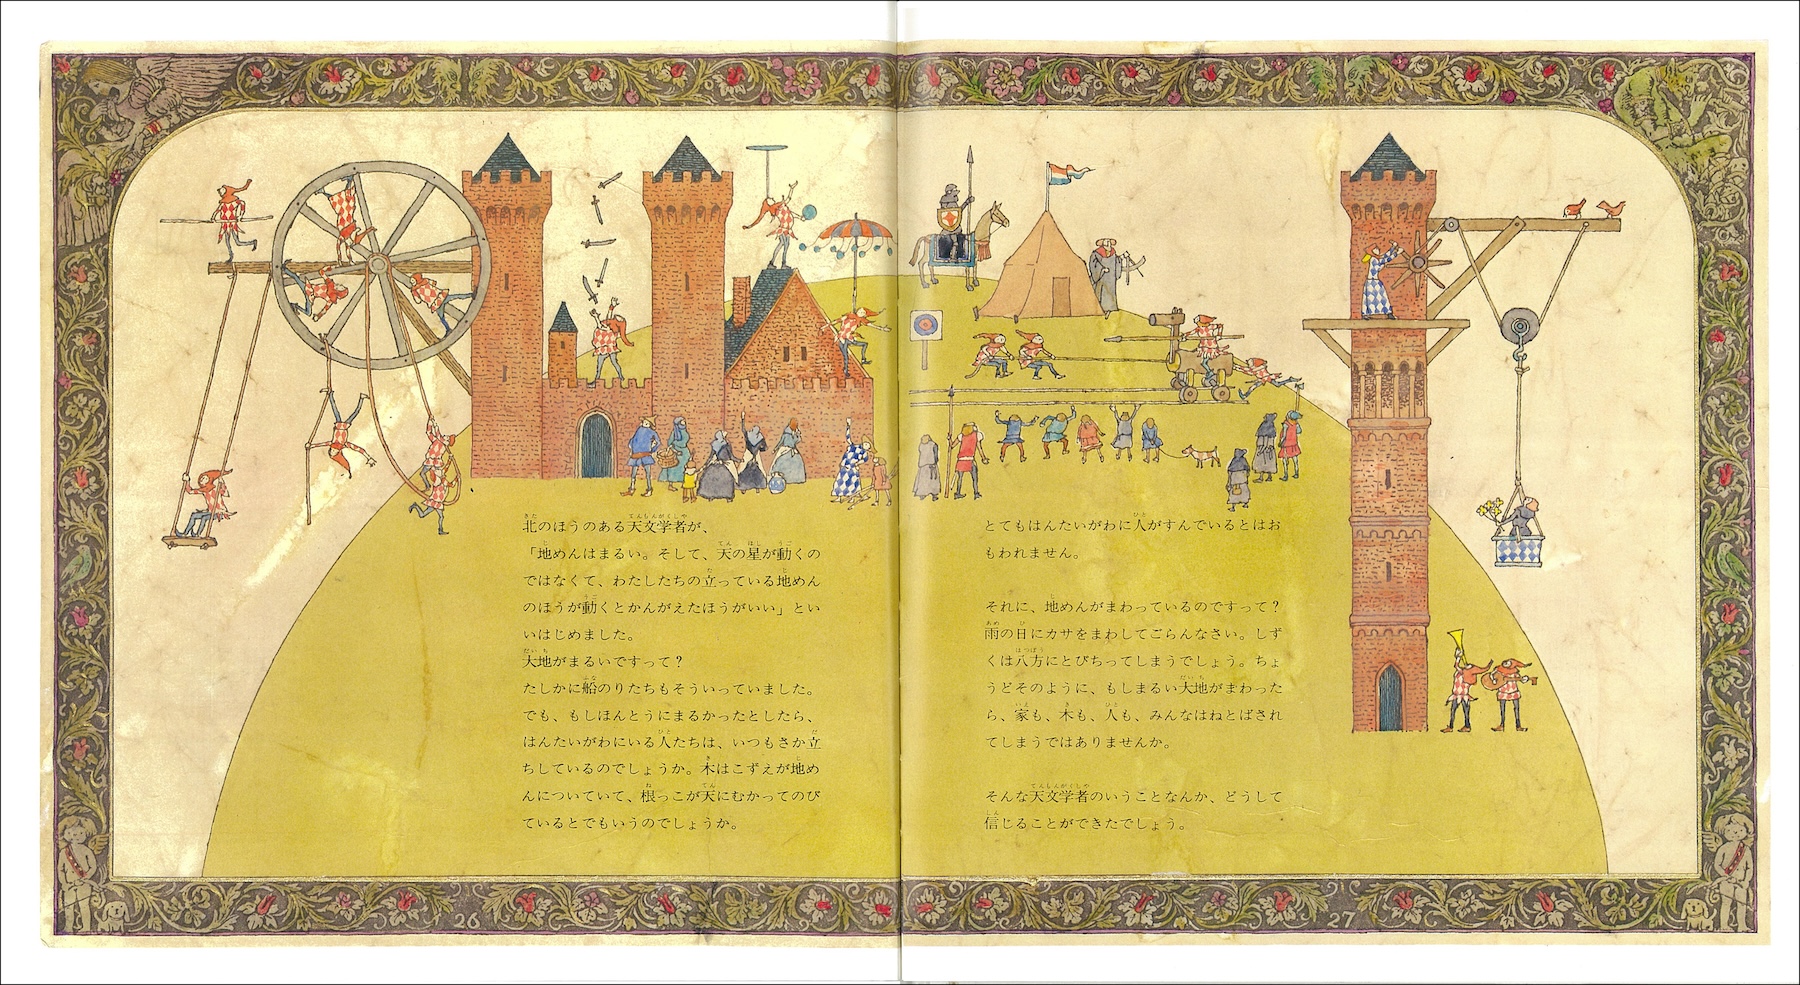 北のほうのある天文学者が、
「地めんはまるい。そして、天の星が動くの
ではなくて、わたしたちの立っている地めん
のほうが動くとかんがえたほうがいい」とい
いはじめました。
大地がまるいですって？
たしかに船のりたちもそういっていました。
でも、もしほんとうにまるかったとしたら、
はんたいがわにいる人たちは、いつもさか立
ちしているのでしょうか。木はこずえが地め
んについていて、根っこが天にむかってのび
ているとでもいうのでしょうか。
26
とてもはんたいがわに人がすんでいるとはお
もわれません。
それに、地めんがまわっているのですって？
雨の日にカサをまわしてごらんなさい。しず
くは八方にとびちってしまうでしょう。ちょ
うどそのように、もしまるい大地がまわった
ら、家も、木も、人も、みんなはねとばされ
てしまうではありませんか。
そんな天文学者のいうことなんか、どうして
信じることができたでしょう。
27